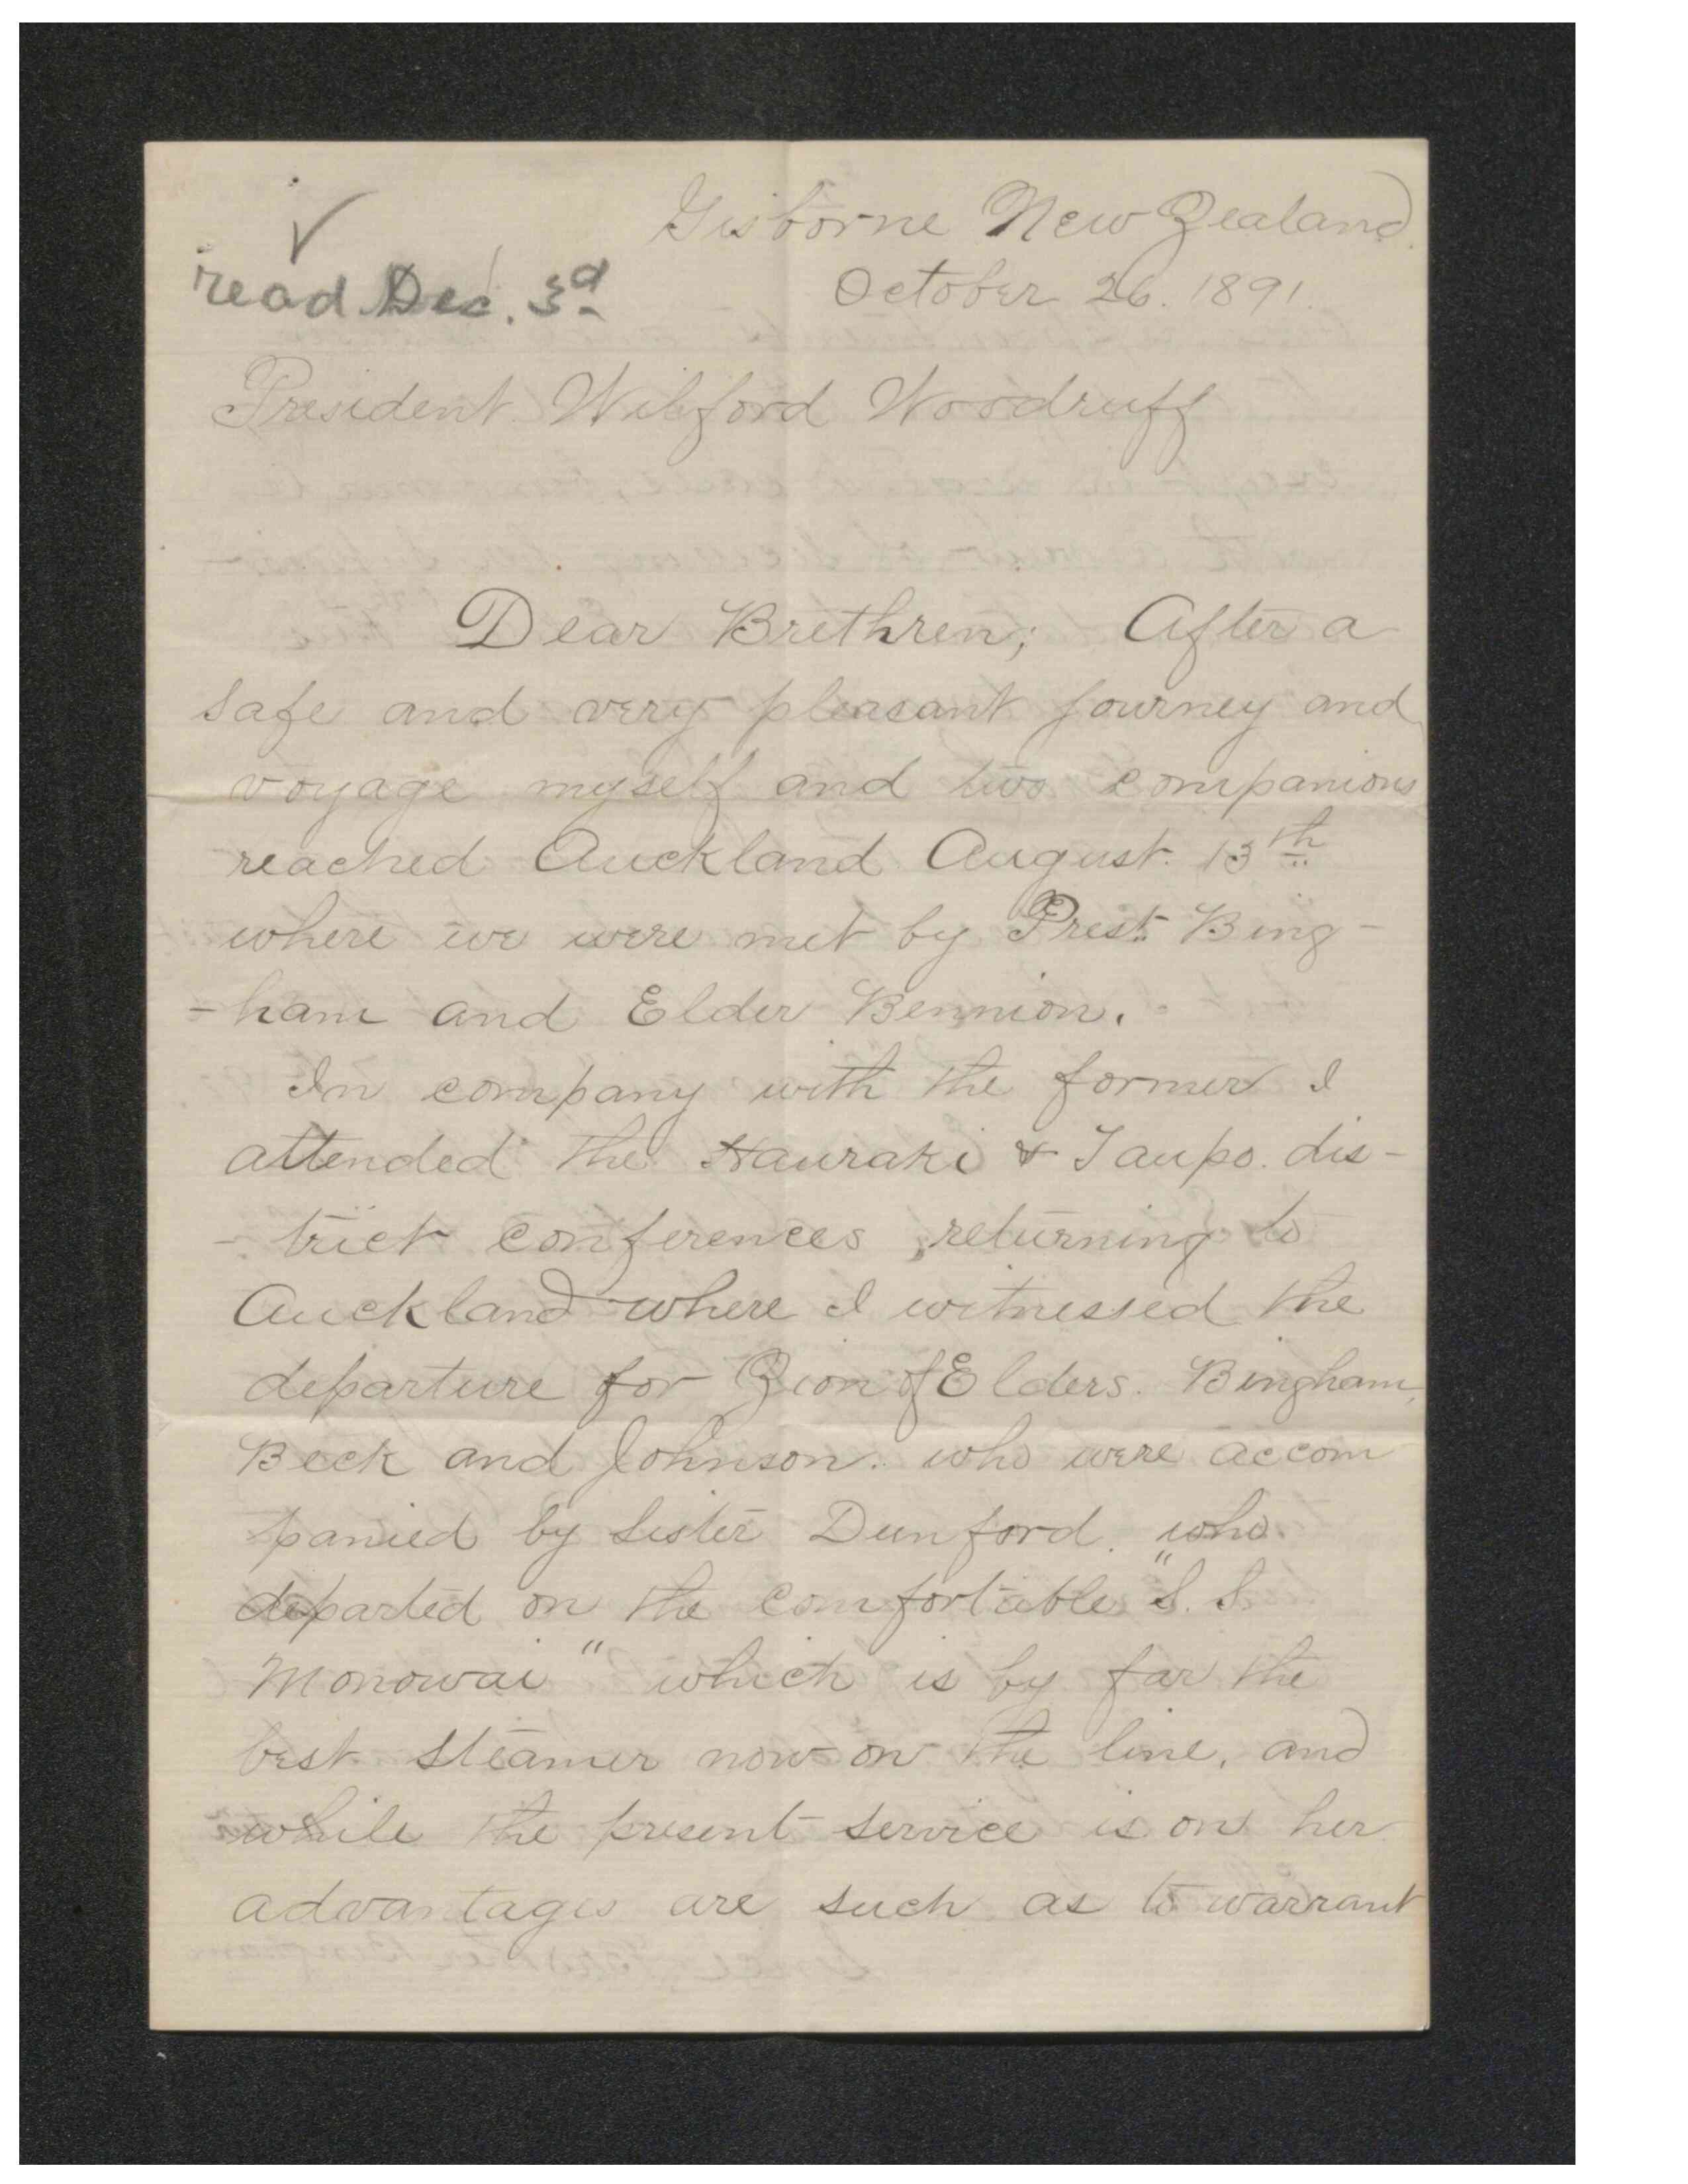 Gisborne New Zealand.
read Dec. 3d
October 26. 1891.
President Wilford Woodruff
Dear Brethren; After a
safe and very pleasant journey and
voyage myself and two companions
reached Auckland August 13th
where we were met by Prest. Bing-
-ham and Elder Bennion.
In company with the former I
attended the Hauraki & Taupo dis-
-trict conferences, returning to
Auckland where I witnessed the
departure for Zion of Elders. Bingham,
Beck and Johnson. who were accom
panied by Sister Dunford. who
departed on the comfortable "S. S.
Monowai" which is by far the
best steamer now on the line, and
while the present service is on her
advantages are such as to warrant